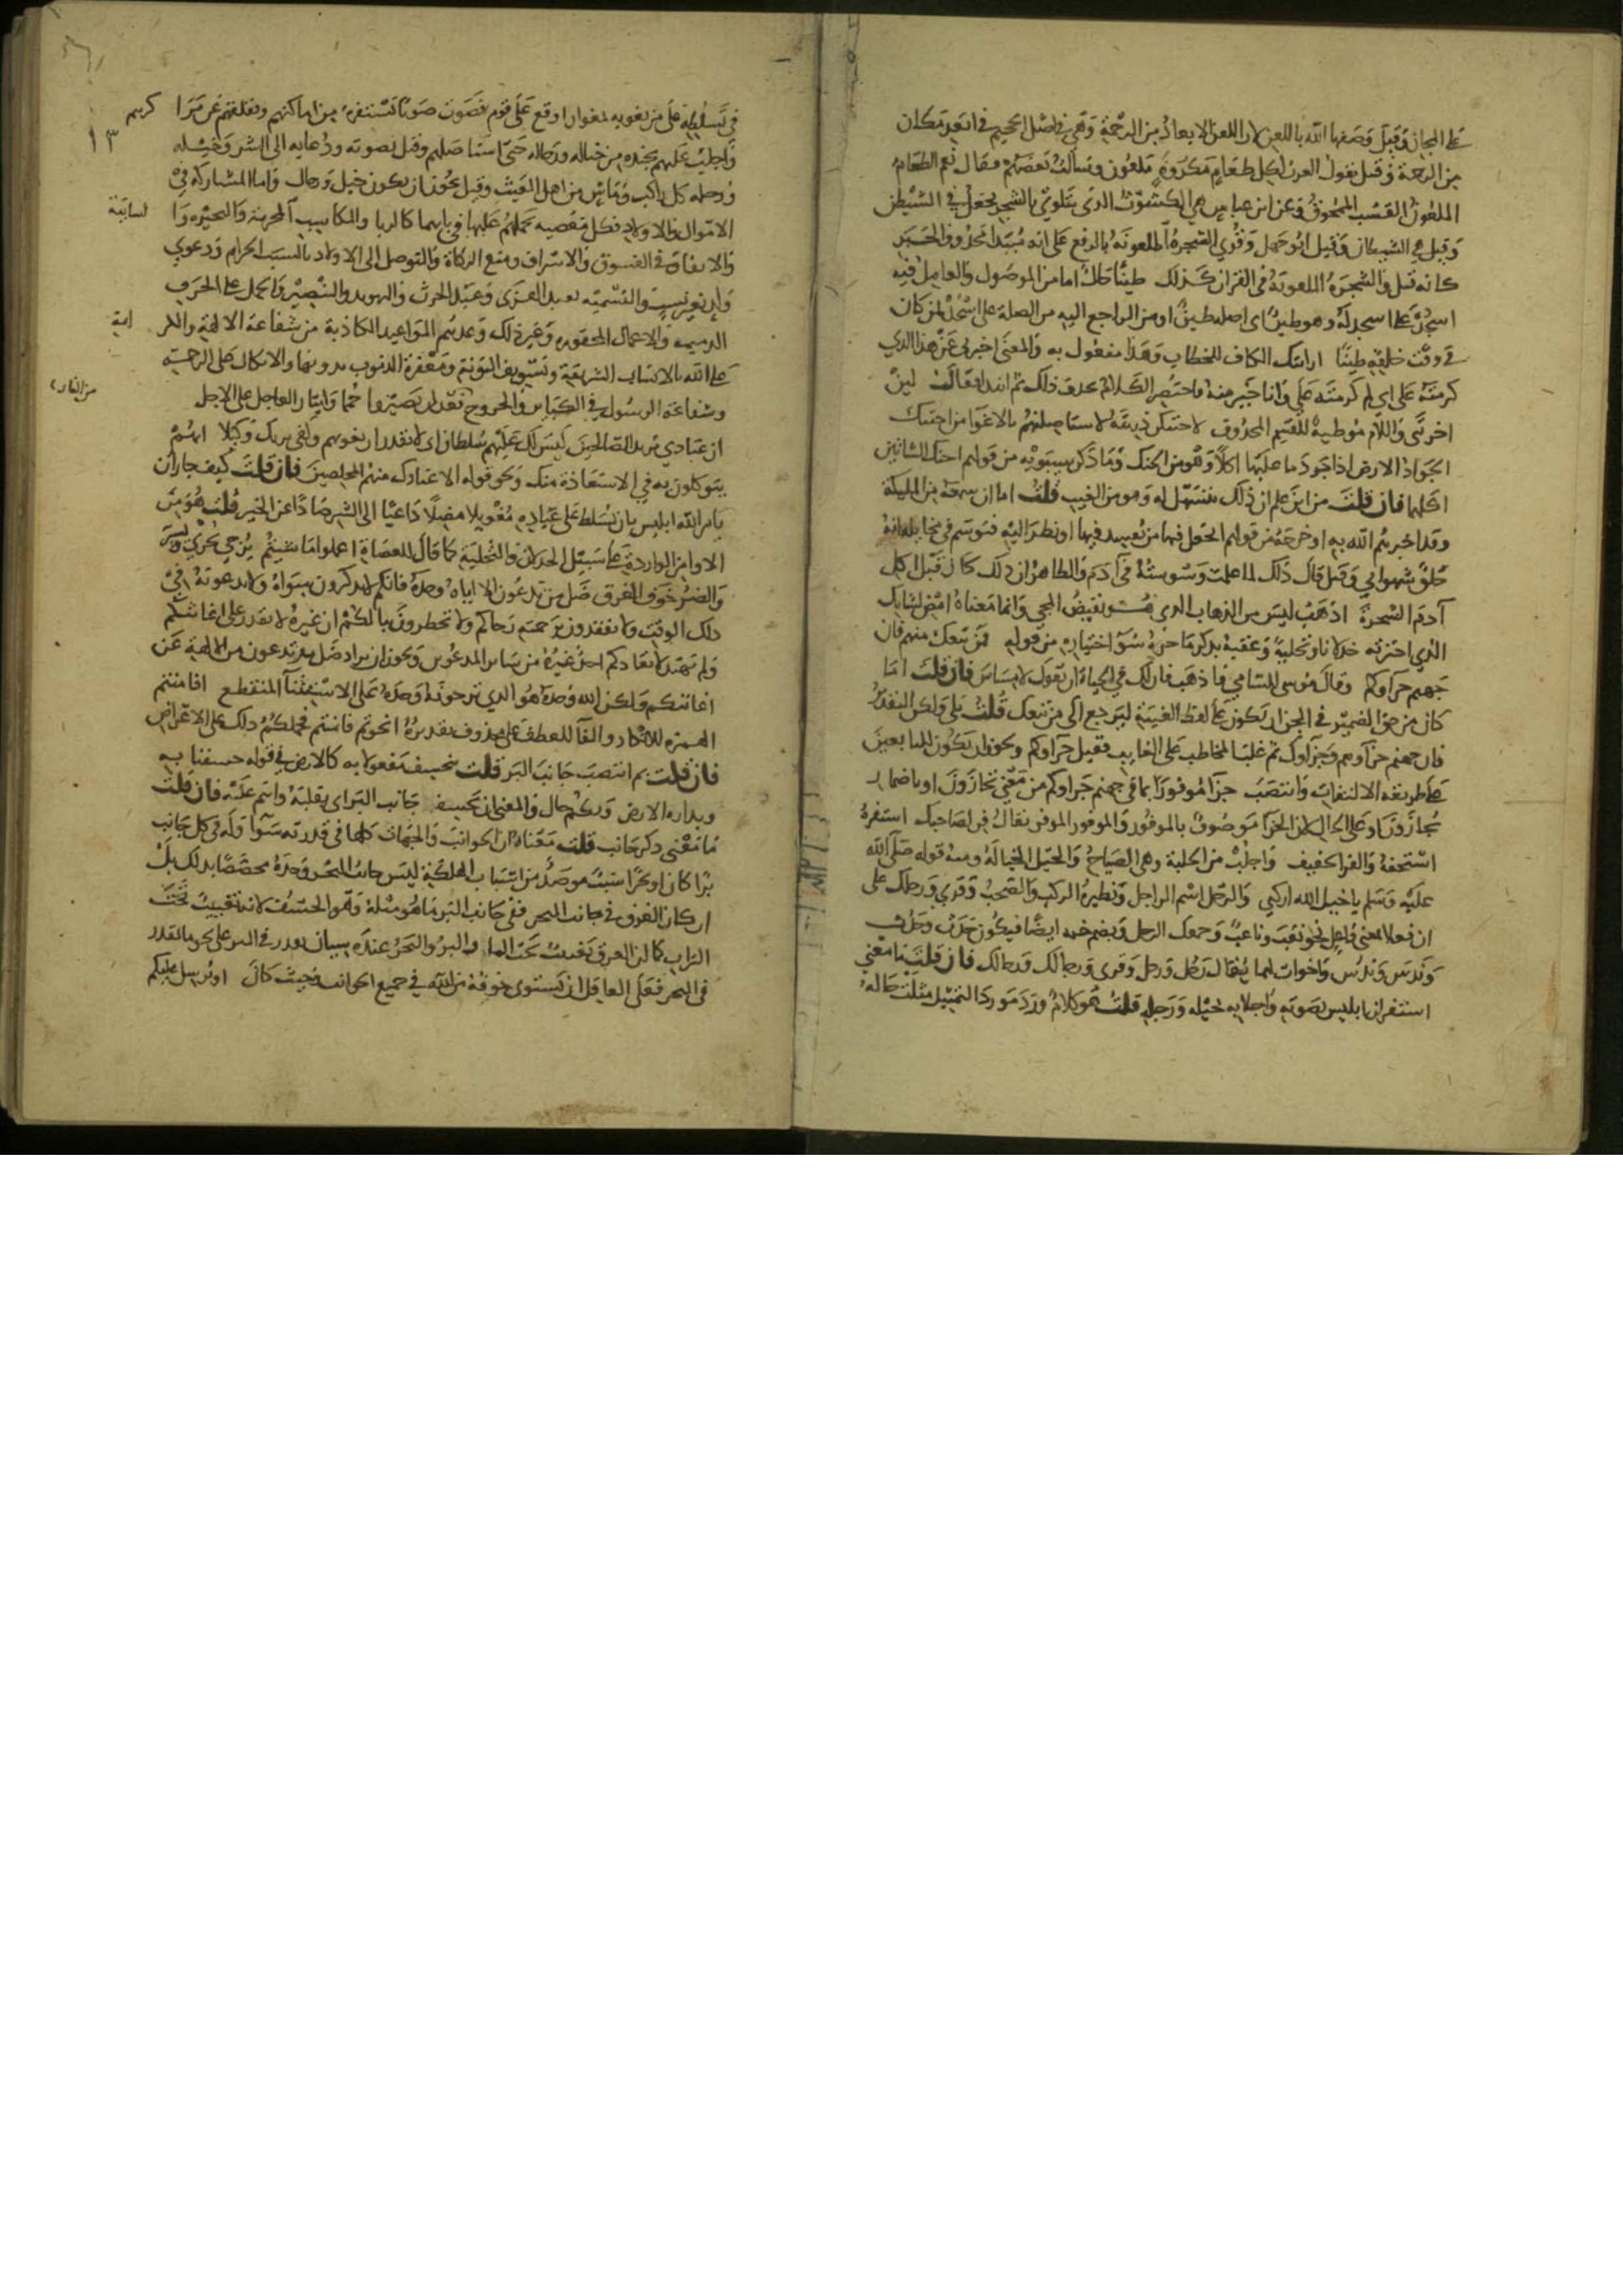 على المجاز وقيل وصفها الله باللعن لان اللعن الابعاد من الرحمة وهي في اصل الجحيم في ابعد مكان
من الرحمة وقيل تقول العرب لكل طعام مكروه ملعون وسالت بعضهم فقال نعم الطعام
الملعون القشب الممحوق وعن ابن عباس هي الكشوث التي تتلوى بالشجر يجعل في الشراب
وقيل هي الشيطان وقيل ابو جهل وقري الشجرة الملعونة بالرفع على انه مبتدا محذوف الخبر
كانه قيل والشجرة الملعونة في القران كذلك طينا حال اما من الموصول والعامل فيه
اسجد على اسجد له وهو طين اى اصله طين او من الراجع اليه من الصلة على اسجد لمن كان
في وقت خلقه طينا ارايتك الكاف للخطاب وهذا مفعول به والمعنى اخبرني عن هذا الذي
كرمته على اى لم كرمته علي وانا خير منه فاختصر الكلام بحذف ذلك ثم ابتدا فقال لين
اخرتني واللام موطية للقسم المحذوف لاحتنكن ذريته لاستاصلنهم بالاغوا من احتنك
الجراد الارض اذا جرد ما عليها اكلا وهو من الحنك وما ذكر سيبويه من قولهم احنك الشاتين
اكلهما فان قلت من اين علم ان ذلك يتسهل له وهو من الغيب قلت اما ان سمعه من المليكة
وقد اخبرهم الله به او خرجه من قولهم اتجعل فيها من يفسد فيها او نظر اليه فتوسم في مخايله انه
خلق شهواني وقيل قال ذلك لما عملت وسوسته في آدم والظاهر ان ذلك كان قبل اكل
آدم الشجرة اذهب ليس من الذهاب الذي هو نقيض المجي وانما معناه امض لشانك
الذي اخترته خذلانا وتخلية وعقبه بذكر ما جره سوء اختياره من قوله فمن تبعك منهم فان
جهنم جزاوكم وقال موسى للسامري فاذهب فان لك في الحياة ان تقول لا مساس فان قلت اما
كان من حق الضمير في الجزا ان يكون على لفظ الغيبة ليرجع الى من تبعك قلت بلى ولكن التقدير
فان جهنم جزاوهم وجزاوك ثم غلب المخاطب على الغايب فقيل جزاوكم ويجوز ان يكون للتابعين
على طريقة الالتفات وانتصب جزا موفورا بما في جهنم جزاوكم من معنى تجازون او باضمار
تجازون او على الحال لان الجزا موصوف بالموفور والموفور الموفر يقال فر لصاحبك استفزه
استخفه والفز الخفيف واجلب من الجلبة وهي الصياح والخيل الخيالة ومنه قوله صلى الله
عليه وسلم يا خيل الله اركبي والرجل اسم الراجل ونظيره الركب والصحب وقري ورجلك على
ان فعلا بمعنى فاعل نحو تعب وتاعب وجمعك الرجل وبضم جيمه ايضا فيكون حدث وحدث
وندس وندس واخوات لهما يقال رجل ورجل وقري ورجالك ورجالك فان قلت ما معنى
استفزاز ابليس بصوته واجلابه بخيله ورجله قلت هو كلام ورد مورد التمثيل مثلت حاله
في تسلطه على من يغويه بمغوار اوقع على قوم فصوت صوتا تستفزهم من اماكنهم ويقلقهم عن مرا كزهم
١٣
واجلب عليهم بجنده من خيالة ورجالة حتى استاصلهم وقيل بصوته ودعايه الى الشر وخيله
ورجله كل راكب وماش من اهل العيث وقيل يجوز ان يكون خيل ورجال واما المشاركة في
الاموال والاولاد فكل معصية يحملهم عليها في بابهما كالربا والمكاسب المحرمة والبحيرة وا لسايبة
والانفاق في الفسوق والاسراف ومنع الزكاة والتوصل الى الاولاد بالسبب الحرام ودعوى
ولد بغير سبب والتسمية بعبد العزى وعبد الحرث والتهويد والتنصير والحمل على الحرف
الذميمة والاعمال المحظورة وغير ذلك وعدهم المواعيد الكاذبة من شفاعة الالهة والكر امة
على الله بالانساب الشريفة وتسويف التوبة ومغفرة الذنوب بدونها والاتكال على الرحمة
وشفاعة الرسول في الكباير والخروج من النار بعد ان يصيروا حمما وايثار العاجل على الاجل
ان عبادي يريد الصالحين ليس لك عليهم سلطان اى لا تقدر ان تغويهم وكفى بربك وكيلا لهم
يتوكلون به في الاستعاذة منك ونحو قوله الا عبادك منهم المخلصين فان قلت كيف جاز ان
يامر الله ابليس بان يتسلط على عباده مغويا مضلا داعيا الى الشر صادا عن الخير قلت هو من
الاوامر الواردة على سبيل الخذلان والتخلية كما قال للعصاة اعملوا ما شيتم يزجي يجري ويسير
والضر خوف الغرق ضل من تدعون الا اياه وحده فانكم لا تذكرون سواه ولا تدعونه في
ذلك الوقت ولا تعقدون برحمته رجاكم ولا تخطرون ببالكم ان غيره لا يقدر على اغاثتكم
ولم يهتد لانقاذكم احد غيره من ساير المدعوين ويجوز ان يراد ضل من تدعون من الالهة عن
اغاثتكم ولكن الله وحده هو الذي ترجونه وحده على الاستثنا المنقطع افامنتم
الهمزة للانكار والفا للعطف على محذوف تقديره انجوتم فامنتم فحملكم ذلك على الاعراض
فان قلت بم انتصب جانب البر قلت بخسف مفعولا به كالارض في قوله خسفنا به
وبداره الارض وبكم حال والمعنى ان يخسف جانب البر اى يقلبه وانتم عليه فان قلت
ما معنى ذكر الجانب قلت معناه ان الجوانب والجهات كلها في قدرته سوا وله في كل جانب
برا كان او بحرا سبب مرصد من اسباب الهلكة ليس جانب البحر وحده مختصا بذلك بل
ان كان الغرق في جانب البحر ففي جانب البر ما هو مثله وهو الخسف لانه تغييب تحت
التراب كما ان الغرق تغييب تحت الما والبر والبحر عنده سيان يقدر في البر على نحو ما يقدر
في البحر فعلى العاقل ان يستوي خوفه من الله في جميع الجوانب وحيث كان او يرسل عليكم